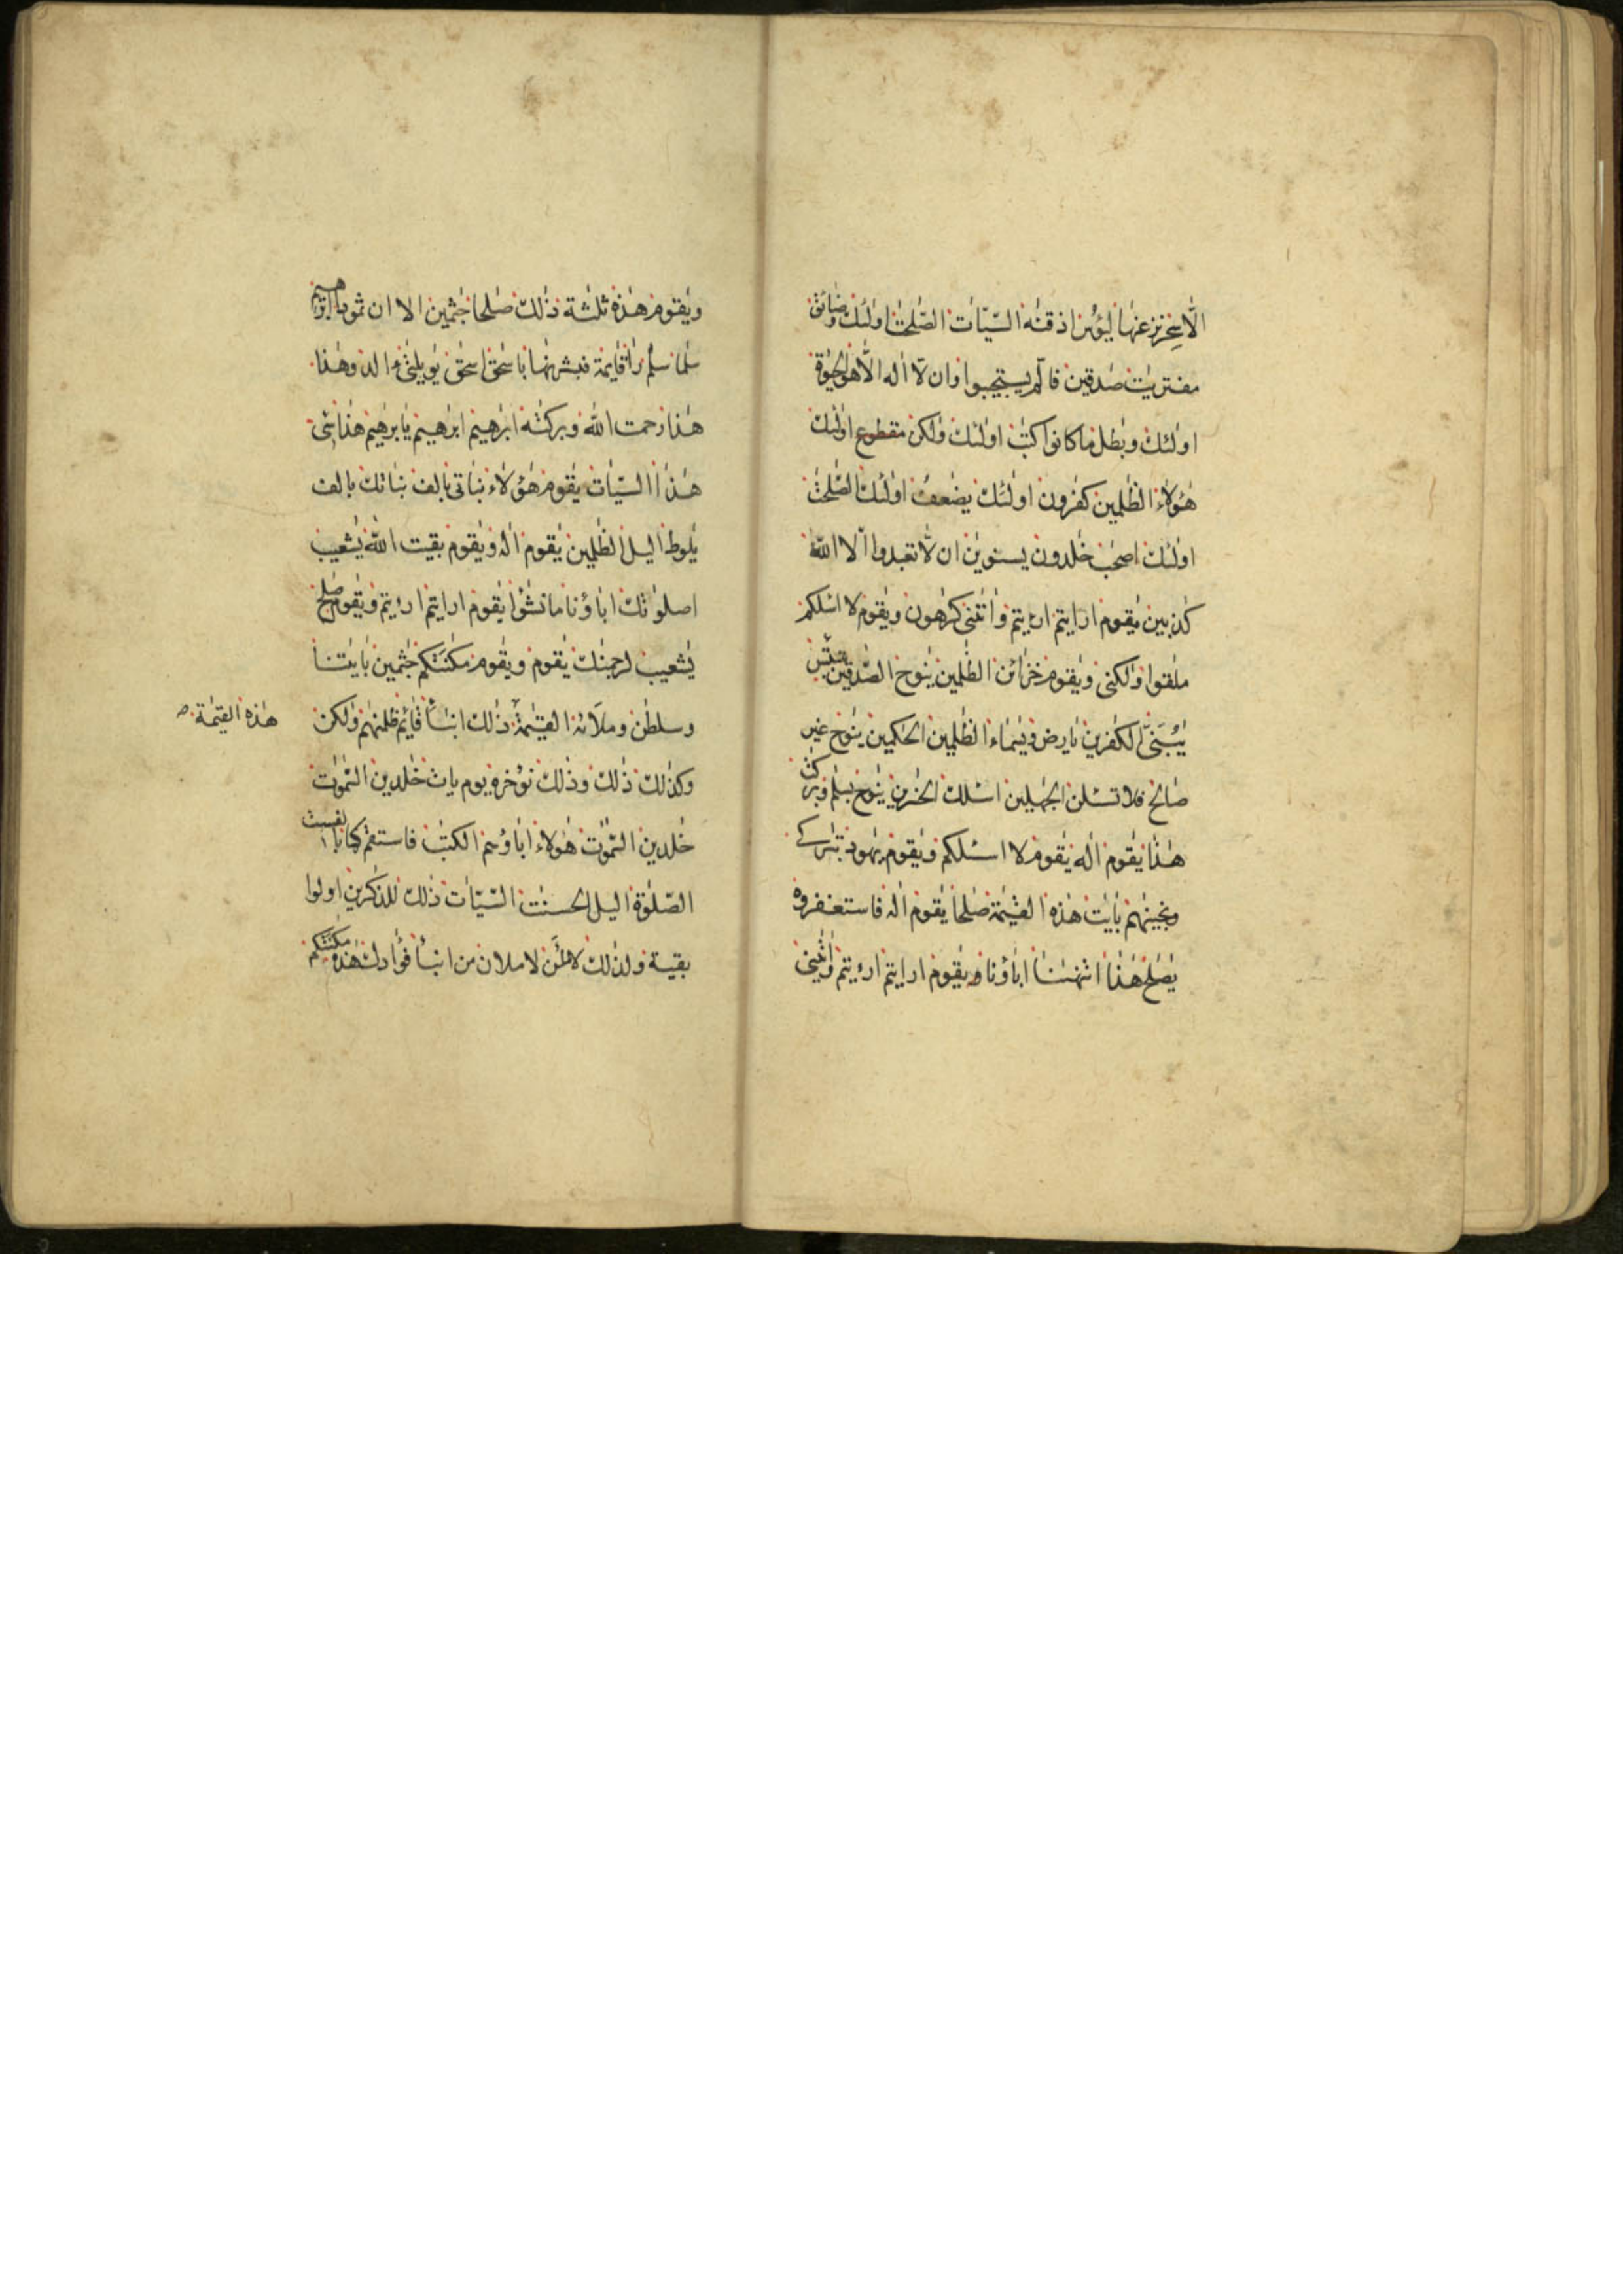 الّا سحر عنها ليؤس اذقنه السيّات الصّلحت اولئك وضائق
مفتريت صدقين فالّم يستجيبوا وان لّا اله الّا هو الحيوة
اولئك وبطل ما كانوا كتب اولئك ولكن مقطوع اولئك
هؤلاء الظلمين كفرون اولئك يضعف اولئك الصّلحت
اولئك اصحب خلدون يستوين ان لّا تعبدوا الّا الله
كذبين يقوم ارايتم ارءيتم واتنى كرهون ويقوم لا اسلكم
ملقوا ولكنى ويقوم خزائن الظلمين ينوح الصّدقين
يبنىّ الكفرين يارض ويسماء الظلمين الحكمين ينوح غير
صالح فلا تسئلن الجهلين اسئلك الخسرين ينوح بسلم وبركت
هذا يقوم اله يقوم لا اسئلكم ويقوم يهود بتاركى
ونجينهم بايت هذه القيمة صلحا يقوم اله فاستغفروه
يصلح هذا اتنهنا اباؤنا يقوم ارايتم ارءيتم واتينى
ويقوم هذه ثلثة ذلك صلحا جثمين الا ان ثمودا
سلما سلم راا قايمة فبشرنها باسحق اسحق يويلتىء الد وهذا
هذا رحمت الله وبركته ابرهيم ابرهيم يابرهيم هذا سىء
هذا السيّات يقوم هؤلاء بناتى بالف بناتك بالف
يلوط اليل الظلمين يقوم اله ويقوم بقيت الله يشعيب
اصلوتك اباؤنا ما نشؤا يقوم ارايتم ارءيتم ويقوم صلح
يشعيب لرجمنك يقوم ويقوم مكنتكم جثمين بايتنا
وسلطن وملائه القيمة ذلك انبأ قايم ظلمنهم ولكن
هذه القيمة صـ
وكذلك ذلك وذلك نؤخره يوم يات خلدين السّموت
خلدين السّموت هؤلاء اباؤهم الكتب فاستقم
الصّلوة اليل الحسنت السّيّات ذلك للذّكرين اولوا
بقية ولذلك لاملان من انبأ فؤادك هذه مكنتكم